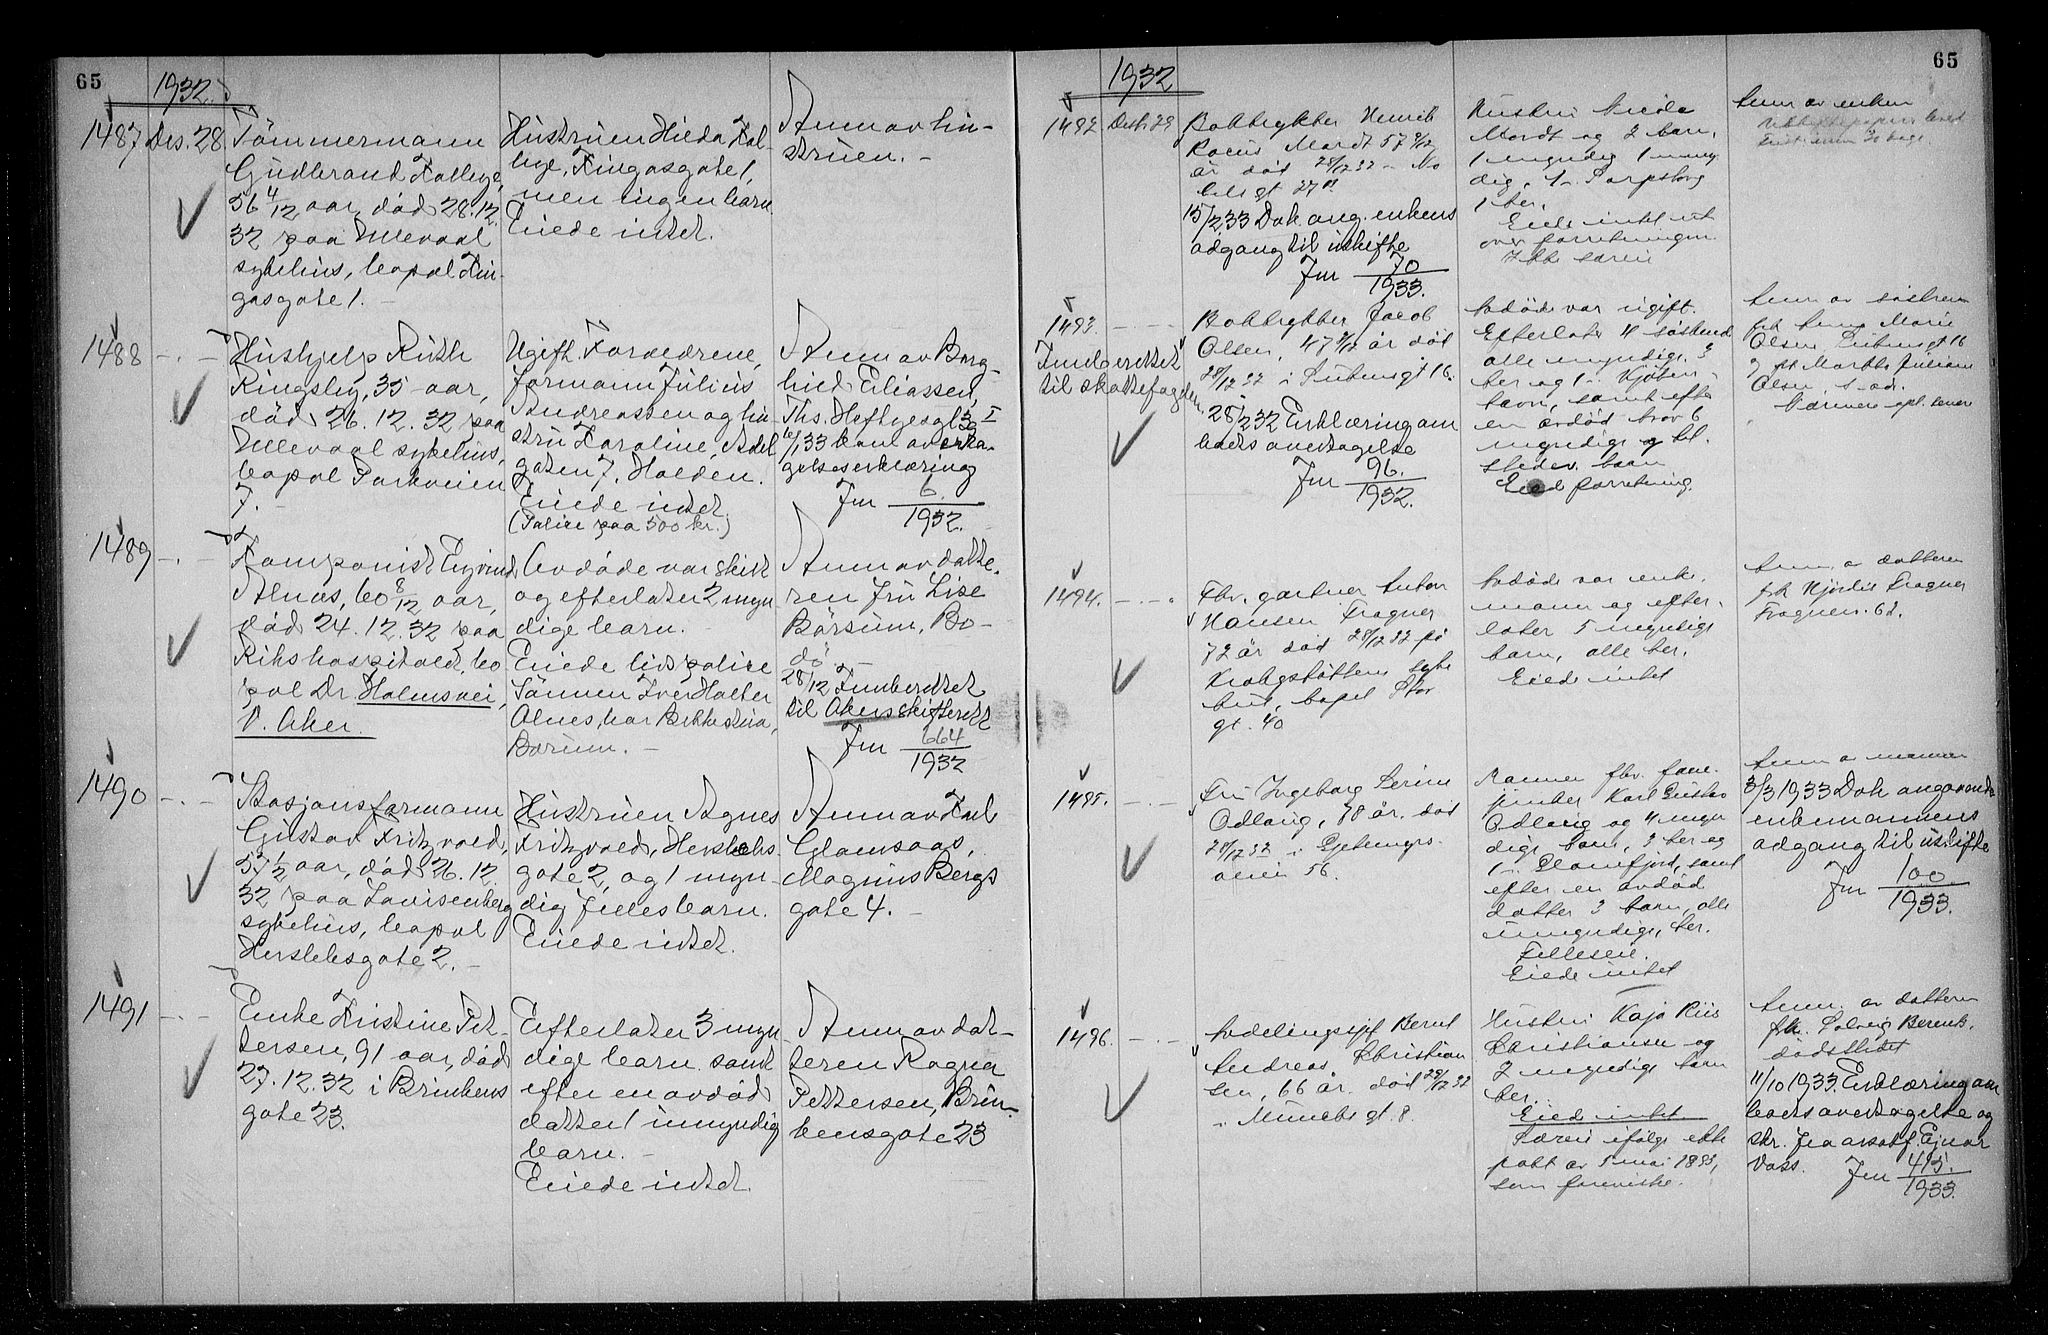 65
1932
1487 Des. 28
Tömmermann
Gudbrand Kollhye,
56 4/12 aar, död 28.12.
32 paa Ullevaal
sykehus, bopæl Kin-
gosgate 1. -
Hustruen Hilda Kol-
hye, Kingosgate 1,
men ingen barn.
Eiede intet.
Anm av hu-
struen. -
1488 - . -
Hushjelp Ruth
Kingsley, 35 aar,
död 26.12.32 paa
Ullevaal sykehus,
bopæl Parkveien
7. -
Ugift. Forældrene,
formann Julius
Andreassen og hu-
stru Karoline, Adel
gaten 7, Halden.
Eiede intet.
(Police paa 500 kr.)
Anm av Borg-
hild Eliassen,
Ths. Heftyesgt 39 I
6/1 33 Dom av
gelseserklæring
Jnr 6.
1932.
1489 - . -
Komponist Eyvind
Alnæs, 60 8/12 aar,
död 24.12.32 paa
Rikshospitalet, bo
pæl Dr. Holmsvei,
V. Aker.
Avdöde var skilt
og efterlater 2 myn
dige barn.
Eiede livspolice
Sönnen Iver Holter
Alnes, har
Bærum. -
Anm av datte-
ren Fru Lise
Börsum, Bo-
dö. -
28/12 Innberettet
til Akers skifterett
Jnr 664
1932
1490 - . -
Stasjonsformann
Gustav Fritzvold,
57 1/2 aar, död 26.12.
32 paa Lovisenberg
sykehus, bopæl
Herslebsgate 2. -
Hustruen Agnes
Fritzvold, Herslebs
gate 2, og 1 myn
dig felles barn.
Eiede intet.
Anm av Karl
Glomsaas,
Magnus Bergs
gate 4. -
1491 - . -
Enke Kristine Pet-
tersen, 91 aar, död
27.12.32 i Brinkens
gate 23.
Efterlater 3 myn
dige barn samt
efter en avdöd
datter 1 umyndig
barn. -
Eiede intet.
Anm av dat-
teren Ragna
Pettersen, Brin-
kensgate 23
65
1932
1492 Desb. 29
Boktrykker Henrik
Mordt 57 9/12
år död 28/12 32 - No
belsgt 27
15/2 33 Dok ang. enkens
adgang til uskifte
Jnr 70
1933.
Hustru
Mordt og 2 barn,
1 myndig 1 umyn
dig, 1 i Sarpsborg
1 her.
Eiede intet ut
over forretningen
Ikke særeie
Anm av enken
1493. - . -
Innberettet
til skattefogden
Boktrykker Jacob
Olsen, 47 år död
28/12 32 i gt 16.
28/ 232 Erklæring om
boets overtagelse
Jnr 96.
1932.
Avdöde var ugift.
Efterlater 4 söskend
alle myndige, 3
her og 1 i Kjöben-
havn, samt efter
en avdöd bror 6
myndige og
barn
Eiede forretning.
Anm av söstrene
frk Anna Marie
Olsen gt 16
og frk Martha Juliane
Olsen, s. ad.
Nærmere opl. senere
1494. - . -
Fhv. gartner Anton
Hansen Frogner
72 år död 28/12 32 på
Krohgstöttens syke
hus, bopel Stor
gt. 40
Avdöde var enke-
mann og efter-
later 5 myndige
barn, alle her.
Eiede intet
Anm. av datteren
frk Hjördis Frogner
1495. - . -
Fru Ingeborg Serine
Odlaug, 78 år, död
28/12 32 i Gjetemyrs-
veien 56.
Mannen fhv.
Karl Gustav
Odlaug og 4 myn
dige barn, 3 her og
1 i Glomfjord, samt
efter en avdöd
datter 3 barn, alle
umyndige, her.
Felleseie.
Eiede intet
Anm av mannen
3/3 1933 Dok angaaende
enkemannens
adgang til uskifte
Jnr 100
1933.
1496. - . -
Avdelingssjef Bernt
Andreas Christian
sen, 66 år. död 28/12 32
i Munchs gt. 8.
Hustru Kaja Riis
Christiansen og
2 myndige barn
her.
Eiede intet
Særeie ifölge ekte
pakt av 5 mai 1893,
som foreviste.
Anm. av datteren
frk. Solveig Berents.
dödsstedet
11/10 1933. Erklæring om
boets overtagelse og
skr. fra Ejnar
Voss. Jnr 415.
1933.